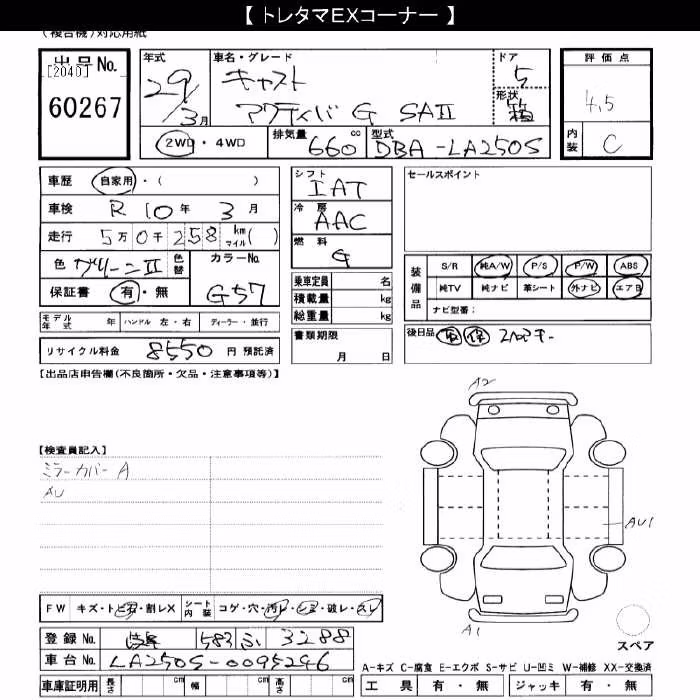 【 トレタマEXコーナー 】
(複合機)対応用紙
出品No.
[2040]
60267
年式
29/3月
車名・グレード
キャスト
アクティバ G SAII
ドア
5
形状
箱
評価点
4.5
内装
C
2WD・4WD
排気量
660 cc
型式
DBA-LA250S
車歴 自家用・( )
車検 R 10年 3月
走行 5万0千258 km マイル( )
色 グリーンII 色替
カラーNo.
G57
保証書 有・無
シフト
IAT
冷房
AAC
燃料
G
乗車定員 名
積載量 kg
総重量 kg
書類期限
月 日
セールスポイント
装備品
S/R 純A/W P/S P/W ABS
純TV 純ナビ 革シート 外ナビ エアB
ナビ型番:
モデル年式 年 ハンドル 左・右 ディーラー・並行
リサイクル料金 8550円 預託済
後日品 取 保 スペアキー
【出品店申告欄(不良箇所・欠品・注意事項等)】
【検査員記入】
ミラーカバーA
AU
A2
AU1
A1
スペア
FW キズ・トビ石・割レX シート内装 コゲ・穴・汚レ・シミ・破レ・スレ
登録No. 岐阜 583 ふ 3288
車台No. LA250S-0095296
車庫証明用 長さ cm 幅 cm 高さ cm
A-キズ C-腐食 E-エクボ S-サビ U-凹ミ W-補修 XX-交換済
工具 有・無 ジャッキ 有・無